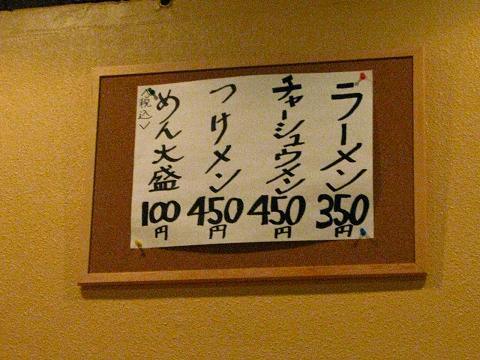 ラーメン 350円
チャーシュウメン 450円
つけメン 450円
めん大盛 100円
<税込>